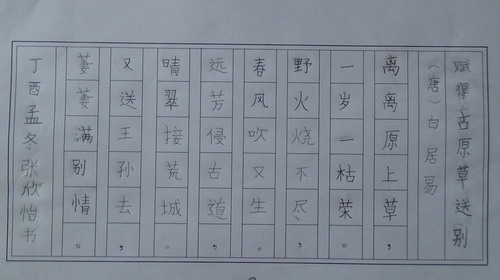 赋得古原草送别
（唐）白居易
离离原上草，
一岁一枯荣。
野火烧不尽，
春风吹又生。
远芳侵古道，
晴翠接荒城。
又送王孙去，
萋萋满别情。
丁酉孟冬张欣怡书